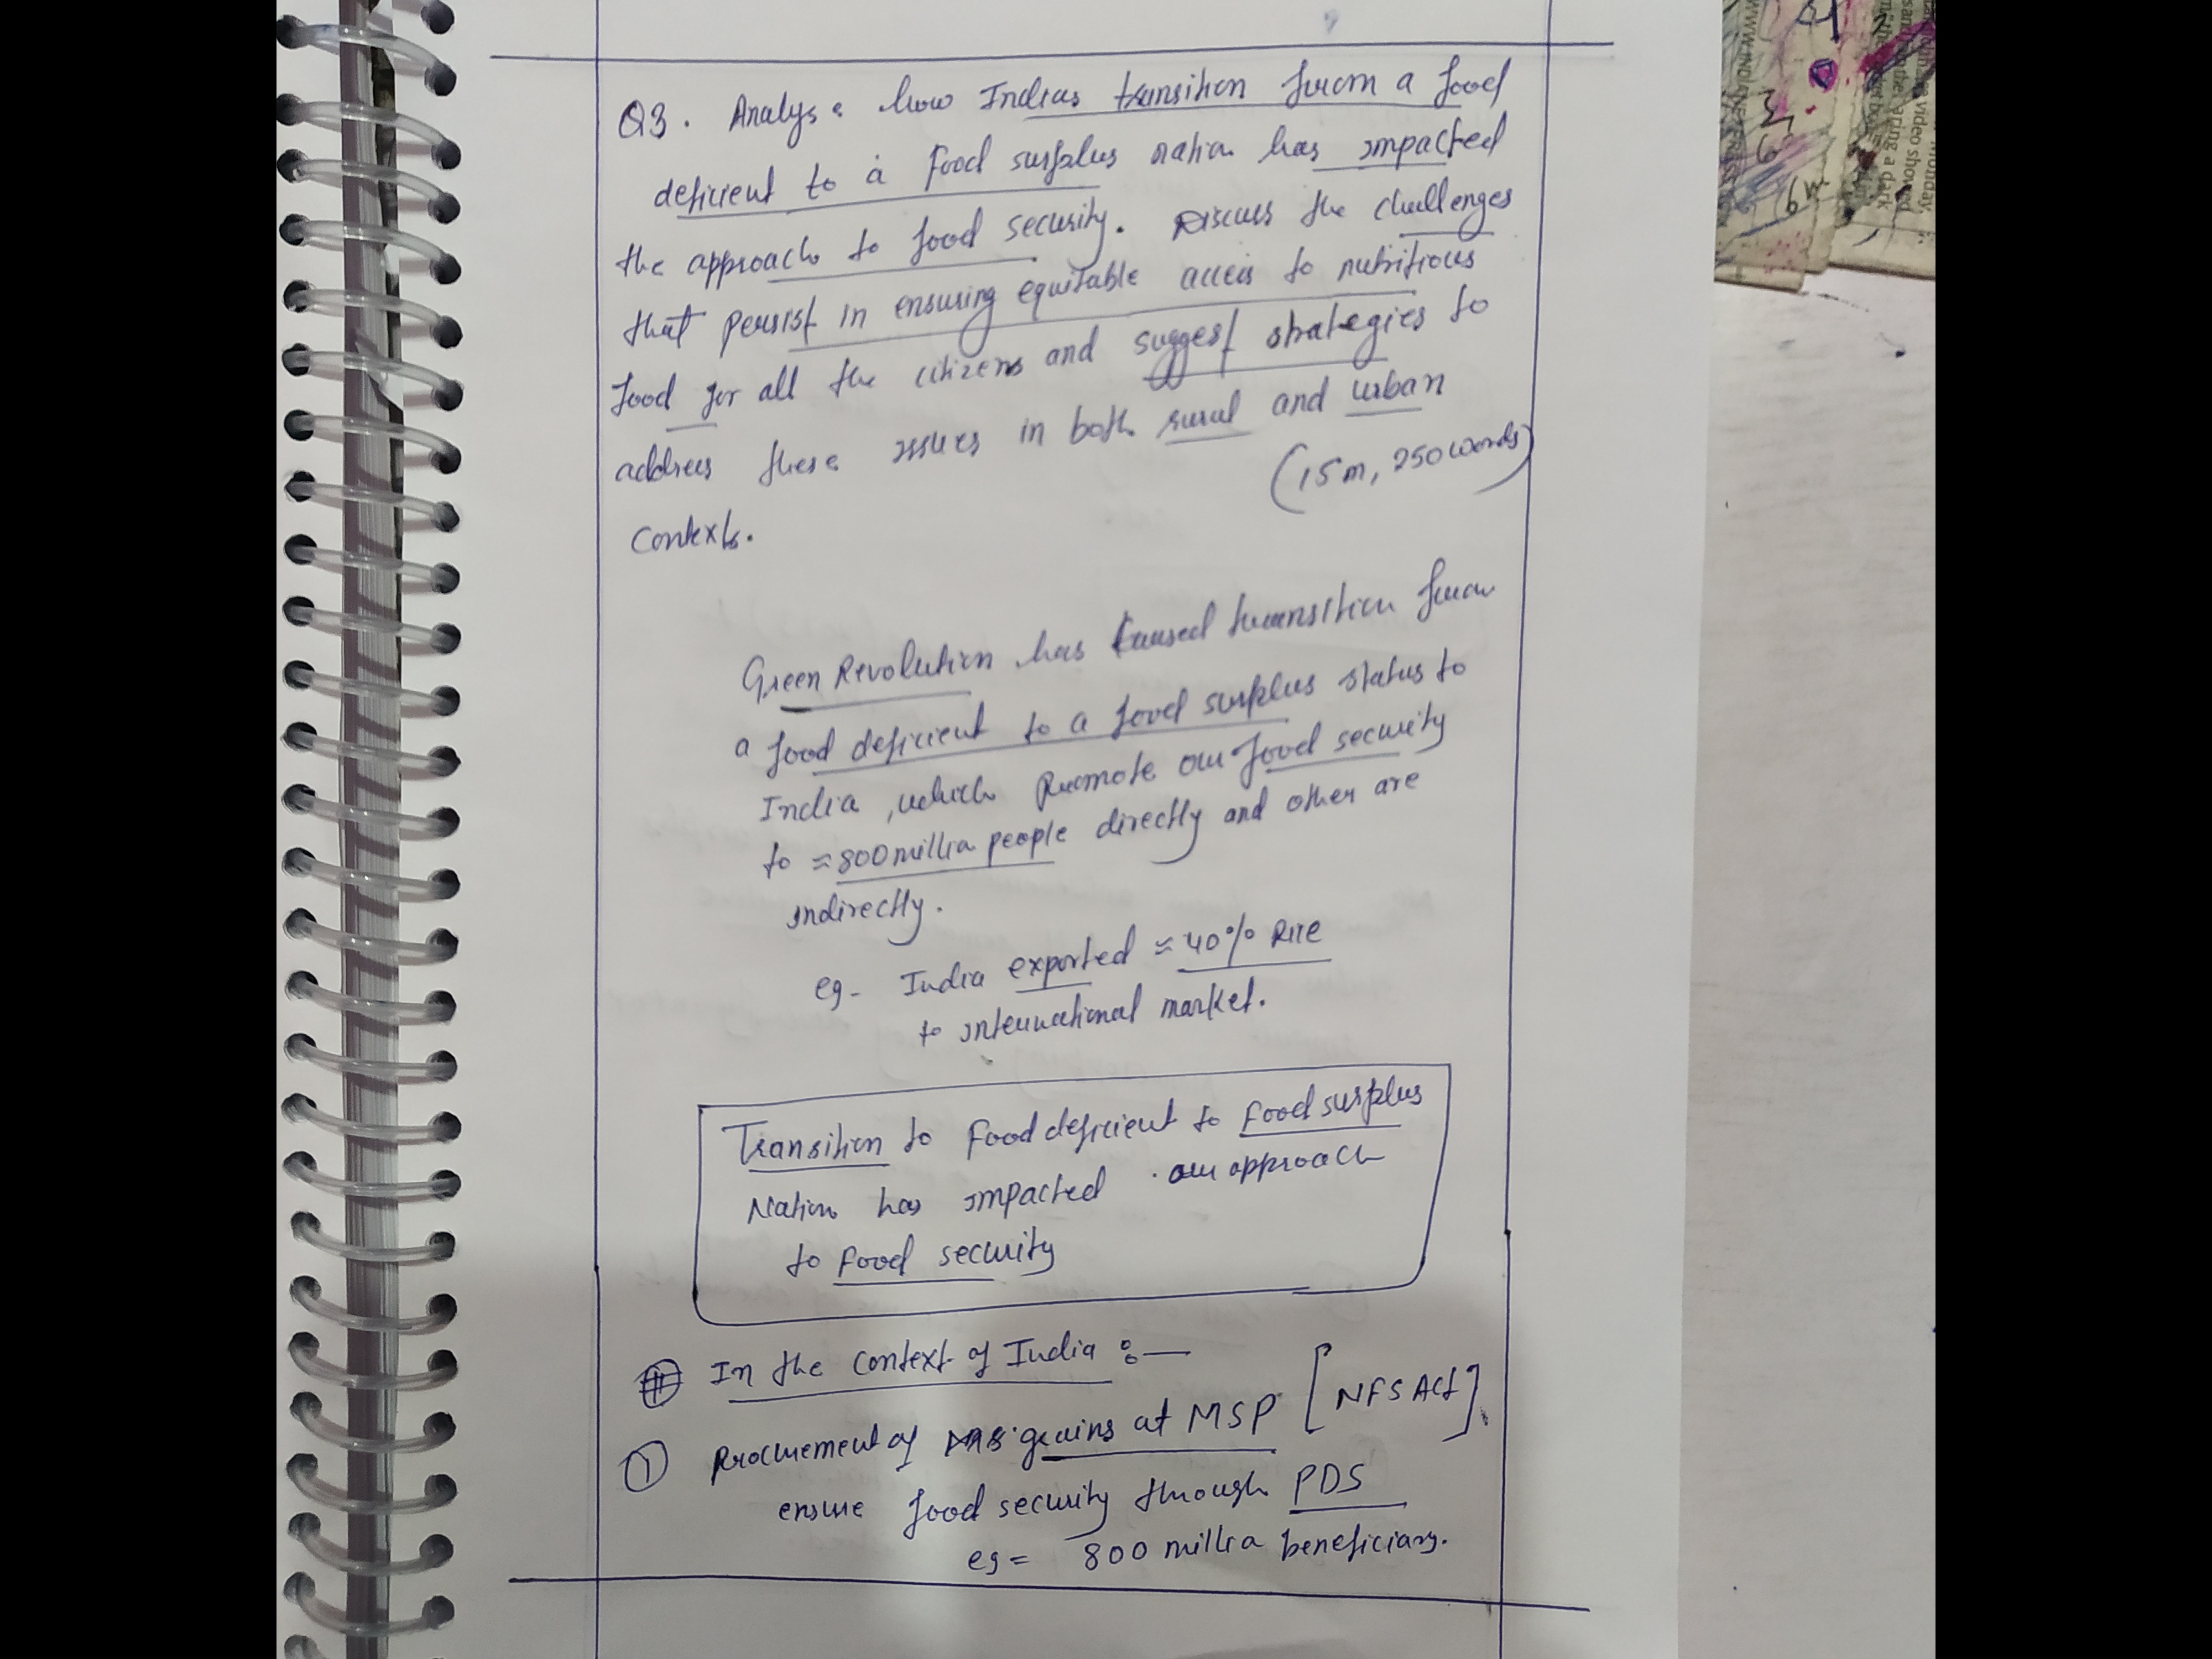 Q3. Analyse how Indias transition from a food
deficient to a food surplus nation has impacted
the approach to food security. Discuss the challenges
that persist in ensuring equitable access to nutritious
food for all the citizens and suggest strategies to
address these issues in both rural and urban
(15m, 250 words)
contexts.
Green Revolution has caused transition from
a food deficient to a food surplus status to
India, which promote our food security
to ≈ 800 million people directly and other are
indirectly.
eg- India exported ≈ 40% Rice
to international market.
Transition to Food deficient to Food surplus
Nation has impacted our approach
to Food security
In the context of India :—
① Procurement of grains at MSP [NFS Act]
ensure food security through PDS
eg = 800 million beneficiary.